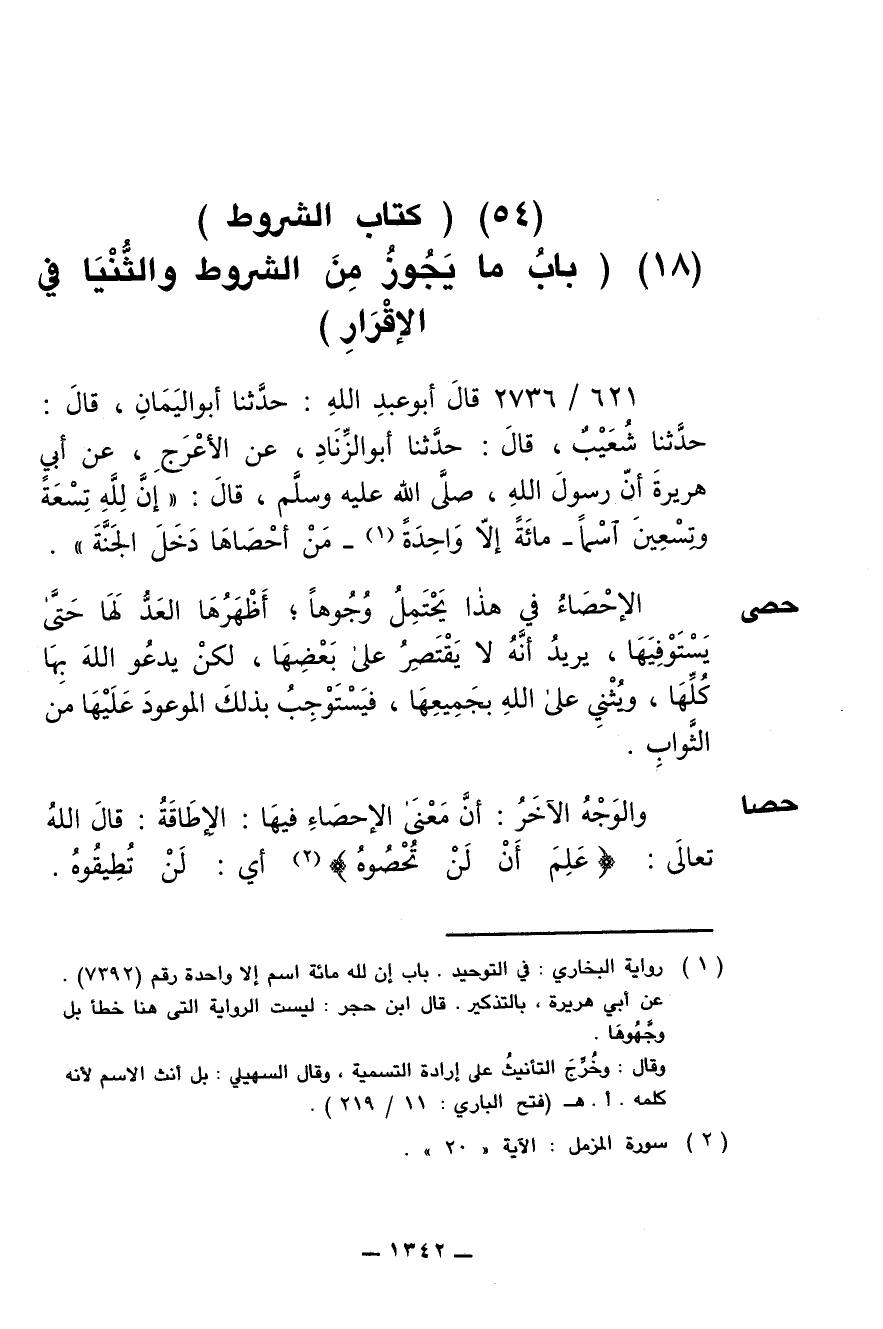 (٥٤) ( كتاب الشروط )
(١٨) ( بابُ ما يَجُوزُ مِنَ الشروط والثُّنْيَا في
الإقْرَارِ )
٦٢١ / ٢٧٣٦ قالَ أبوعبدِ اللهِ : حدَّثنا أبواليَمَانِ ، قالَ :
حدَّثنا شُعَيْبٌ ، قالَ : حدَّثنا أبوالزِّنَادِ ، عن الأعْرَجِ ، عن أبي
هريرةَ أنّ رسولَ اللهِ ، صلَّى الله عليه وسلَّم ، قالَ : « إنَّ لِلَّهِ تِسْعَةً
وتِسْعِينَ ٱسْماً ـ مائَةً إلاّ وَاحِدَةً (١) ـ مَنْ أحْصَاهَا دَخَلَ الجَنَّةَ » .
حصى الإحْصَاءُ في هذٰا يَحْتَمِلُ وُجُوهاً ؛ أَظْهَرُهَا العَدُّ لَهَا حَتَّىٰ
يَسْتَوْفِيَهَا ، يريدُ أنَّهُ لا يَقْتَصِرُ علىٰ بَعْضِهَا ، لكنْ يدعُو اللهَ بِهَا
كُلِّهَا ، ويُثْنِي علىٰ اللهِ بجَمِيعِهَا ، فيَسْتَوْجِبُ بذلكَ الموعودَ عَلَيْهَا من
الثَّوابِ .
حصا والوَجْهُ الآخَرُ : أنَّ مَعْنَىٰ الإحصَاءِ فيهَا : الإطَاقَةُ : قالَ اللهُ
تعالَى : ﴿ عَلِمَ أَنْ لَنْ تُحْصُوهُ ﴾ (٢) أي : لَنْ تُطِيقُوهُ .
( ١ ) رواية البخاري : في التوحيد . باب إن لله مائة اسم إلا واحدة رقم (٧٣٩٢) .
عن أبي هريرة ، بالتذكير . قال ابن حجر : ليست الرواية التى هنا خطأ بل
وجَّهُوهَا .
وقال : وخُرِّجَ التأنيثُ على إرادة التسمية ، وقال السهيلي : بل أنث الاسم لأنه
كلمه . أ . هـ (فتح الباري : ١١ / ٢١٩ ) .
( ٢ ) سورة المزمل : الآية « ٢٠ » .
ـ ١٣٤٢ ـ